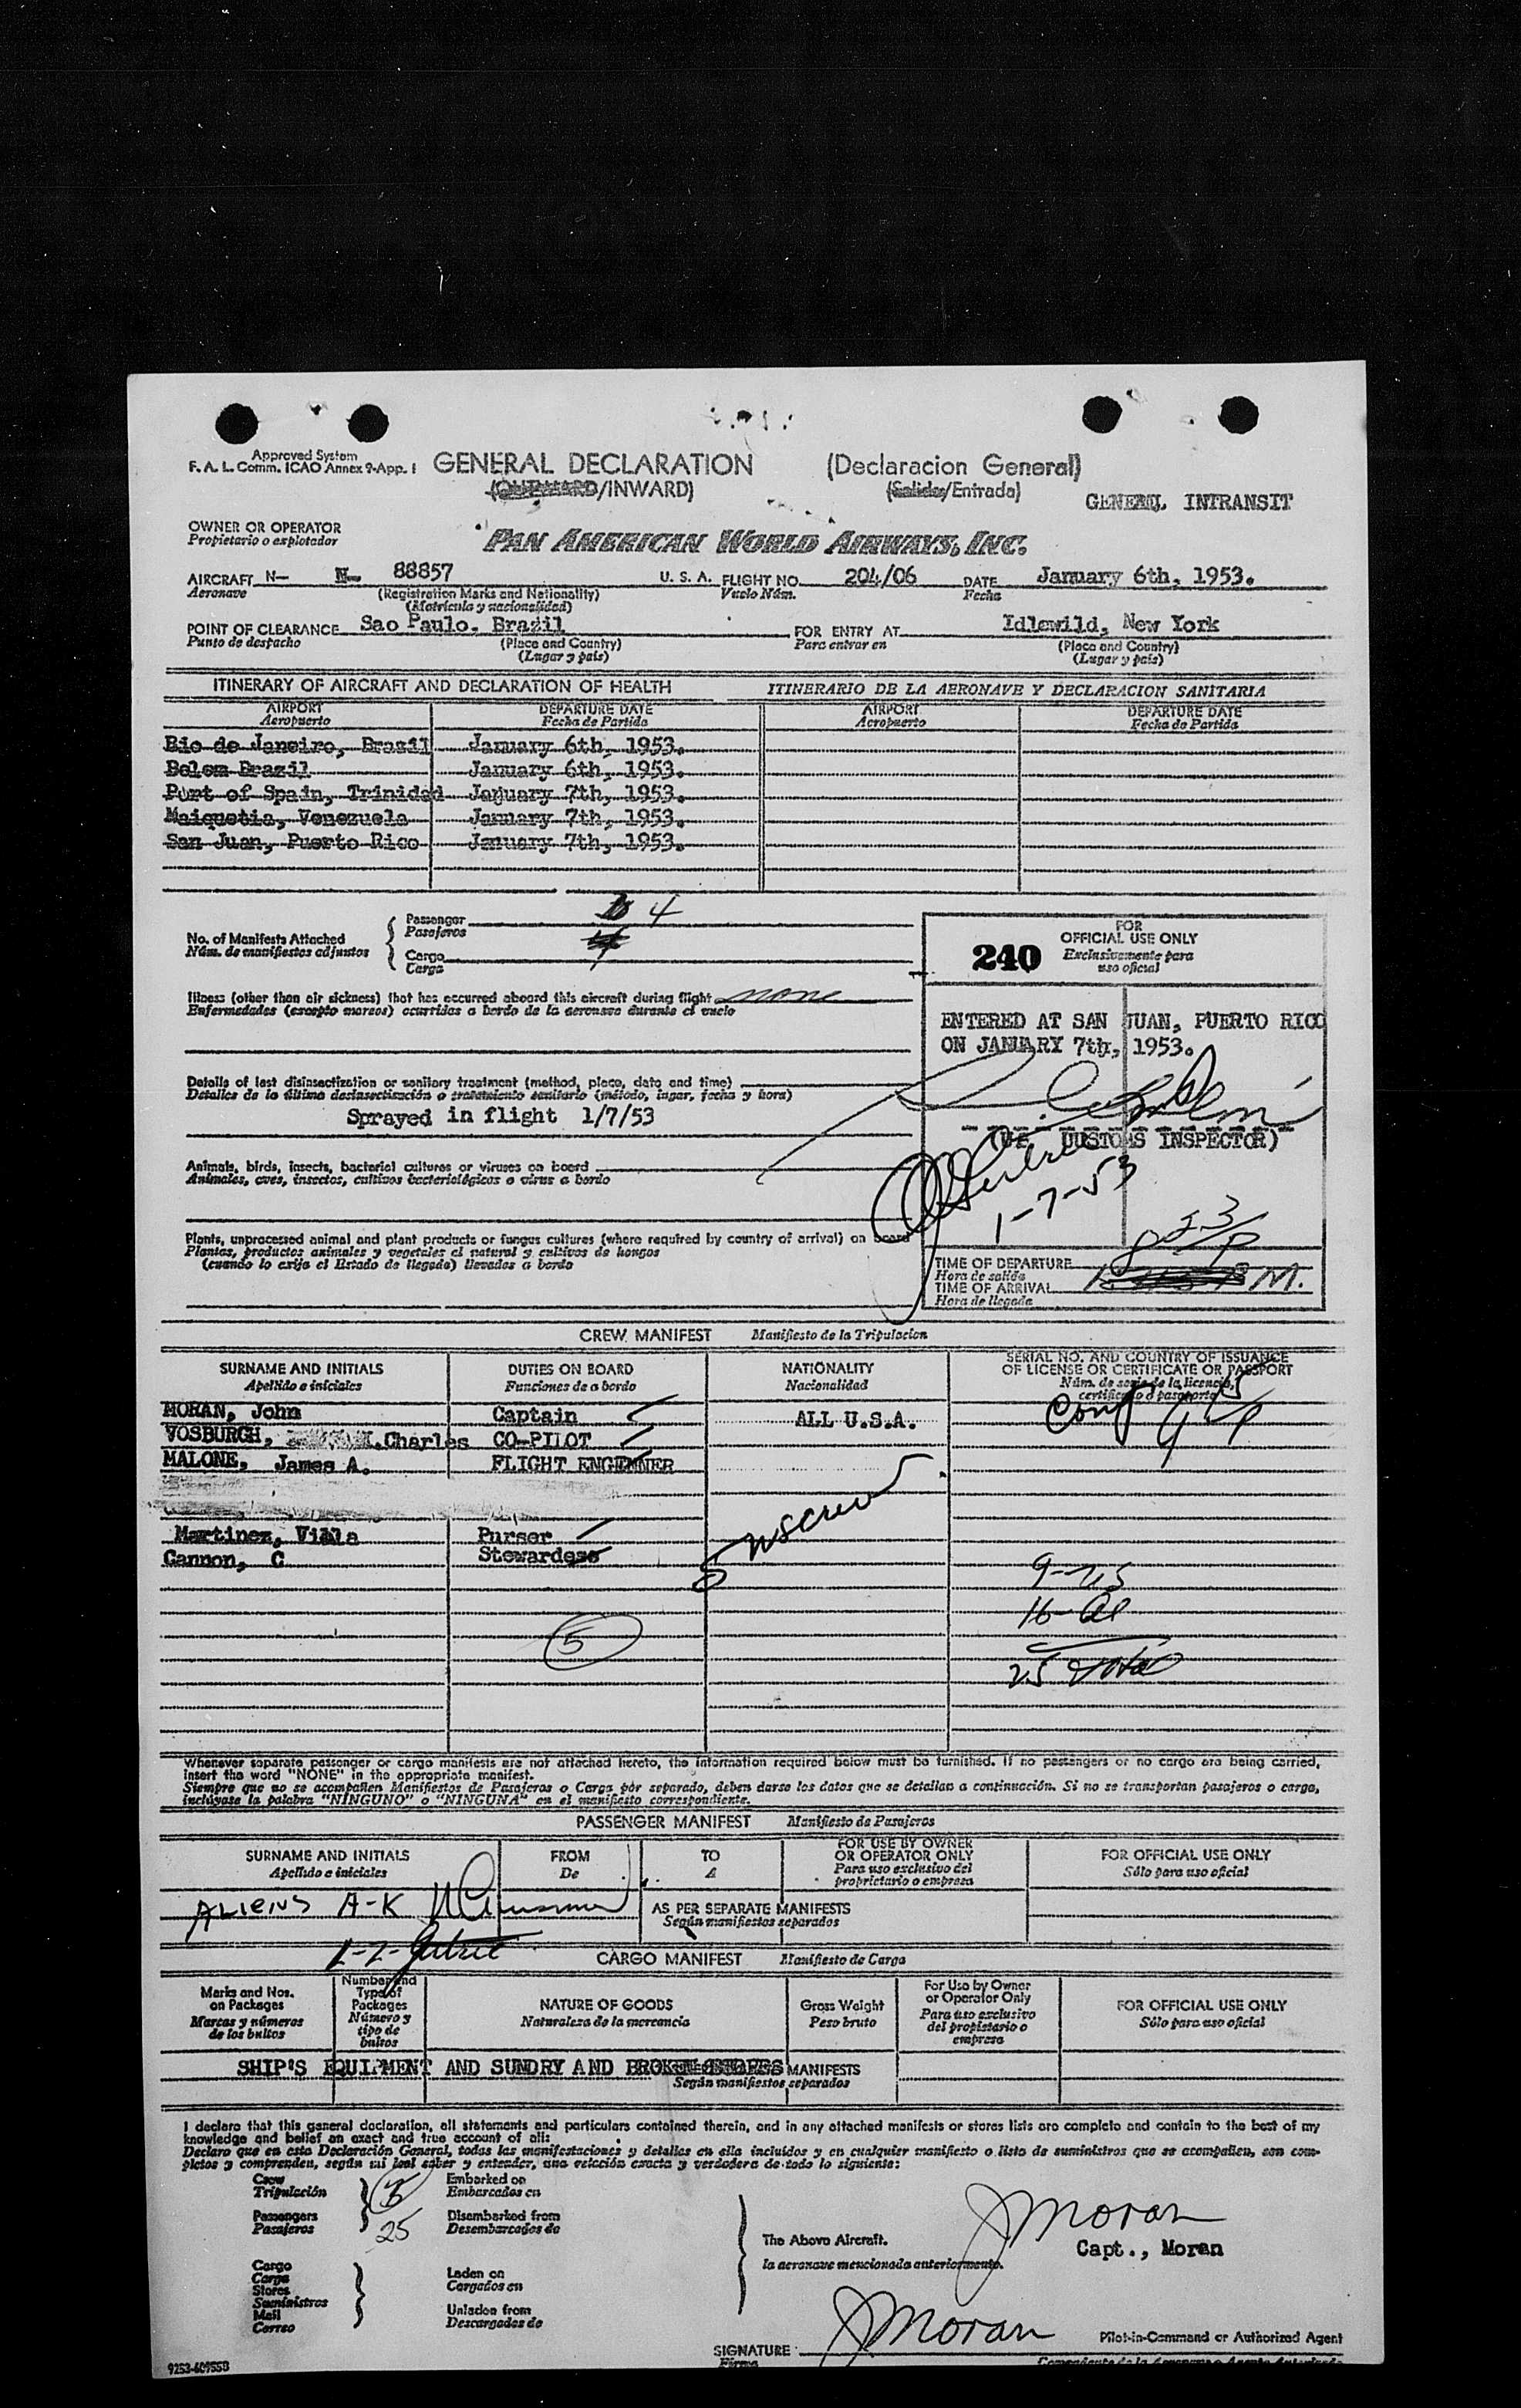 Approved System
F. A. L. Comm. ICAO Annex 9-App. I
GENERAL DECLARATION (Declaracion General)
(OUTWARD/INWARD) (Salida/Entrada)
GENERAL INTRANSIT
OWNER OR OPERATOR
Propietario o explotador
PAN AMERICAN WORLD AIRWAYS, INC.
AIRCRAFT N- N- 88857 U. S. A. FLIGHT NO. 204/06 DATE January 6th, 1953.
Aeronave (Registration Marks and Nationality) Vuelo Núm. Fecha
(Matrícula y nacionalidad)
POINT OF CLEARANCE Sao Paulo. Brazil FOR ENTRY AT Idlewild, New York
Punto de despacho (Place and Country) Para entrar en (Place and Country)
(Lugar y país) (Lugar y país)
ITINERARY OF AIRCRAFT AND DECLARATION OF HEALTH ITINERARIO DE LA AERONAVE Y DECLARACION SANITARIA
AIRPORT DEPARTURE DATE AIRPORT DEPARTURE DATE
Aeropuerto Fecha de Partida Aeropuerto Fecha de Partida
Rio de Janeiro, Brazil January 6th, 1953.
Belem Brazil January 6th, 1953.
Port of Spain, Trinidad January 7th, 1953.
Maiquetia, Venezuela January 7th, 1953.
San Juan, Puerto Rico January 7th, 1953.
No. of Manifests Attached
Núm. de manifiestos adjuntos
Passenger 4
Pasajeros
Cargo
Carga
240
FOR
OFFICIAL USE ONLY
Exclusivamente para
uso oficial
Illness (other than air sickness) that has occurred aboard this aircraft during flight none
Enfermedades (excepto mareos) ocurridas a bordo de la aeronave durante el vuelo
ENTERED AT SAN JUAN, PUERTO RICO
ON JANUARY 7th, 1953.
Details of last disinsectization or sanitary treatment (method, place, date and time)
Detalles de la última desinsectización o tratamiento sanitario (método, lugar, fecha y hora)
Sprayed in flight 1/7/53
(U.S. CUSTOMS INSPECTOR)
1-7-53
Animals, birds, insects, bacterial cultures or viruses on board
Animales, aves, insectos, cultivos bacteriológicos o virus a bordo
Plants, unprocessed animal and plant products or fungus cultures (where required by country of arrival) on board
Plantas, productos animales y vegetales al natural y cultivos de hongos
(cuando lo exija el Estado de llegada) llevados a bordo
TIME OF DEPARTURE
Hora de salida
TIME OF ARRIVAL M.
Hora de llegada
CREW MANIFEST Manifiesto de la Tripulacion
SURNAME AND INITIALS DUTIES ON BOARD NATIONALITY SERIAL NO. AND COUNTRY OF ISSUANCE
Apellido e iniciales Funciones de a bordo Nacionalidad OF LICENSE OR CERTIFICATE OR PASSPORT
Núm. de serie de la licencia,
certificado o pasaporte
MORAN, John Captain ALL U.S.A.
VOSBURGH, Charles CO-PILOT
MALONE, James A. FLIGHT ENGINNER
Martinez, Villa Purser
Cannon, C Stewardess
5 uscrew
9-US
16-al
25 total
5
Whenever separate passenger or cargo manifests are not attached hereto, the information required below must be furnished. If no passengers or no cargo are being carried,
insert the word "NONE" in the appropriate manifest.
Siempre que no se acompañen Manifiestos de Pasajeros o Carga por separado, deben darse los datos que se detallan a continuación. Si no se transportan pasajeros o carga,
inclúyase la palabra "NINGUNO" o "NINGUNA" en el manifiesto correspondiente.
PASSENGER MANIFEST Manifiesto de Pasajeros
SURNAME AND INITIALS FROM TO FOR USE BY OWNER FOR OFFICIAL USE ONLY
Apellido e iniciales De A OR OPERATOR ONLY Sólo para uso oficial
Para uso exclusivo del
propietario o empresa
ALIENS A-K
AS PER SEPARATE MANIFESTS
Según manifiestos separados
CARGO MANIFEST Manifiesto de Carga
Marks and Nos. on Packages
Marcas y números de los bultos
Number and Type of Packages
Número y tipo de bultos
NATURE OF GOODS
Naturaleza de la mercancia
Gross Weight
Peso bruto
For Use by Owner or Operator Only
Para uso exclusivo del propietario o empresa
FOR OFFICIAL USE ONLY
Sólo para uso oficial
SHIP'S EQUIPMENT AND SUNDRY AND BROKEN STORES MANIFESTS
Según manifiestos separados
I declare that this general declaration, all statements and particulars contained therein, and in any attached manifests or stores lists are complete and contain to the best of my
knowledge and belief an exact and true account of all:
Declaro que en esta Declaración General, todas las manifestaciones y detalles en ella incluídos y en cualquier manifiesto o lista de suministros que se acompañen, son com-
pletos y comprenden, según mi leal saber y entender, una relación exacta y verdadera de todo lo siguiente:
Crew 5 Embarked on
Tripulación Embarcados en
Passengers 25 Disembarked from
Pasajeros Desembarcados de
Cargo
Carga
Stores
Suministros
Mail
Correo
Laden on
Cargados en
Unladen from
Descargados de
The Above Aircraft.
la aeronave mencionada anteriormente.
J Moran
Capt., Moran
SIGNATURE J Moran
Firma
Pilot-in-Command or Authorized Agent
Comandante de la Aeronave o Agente Autorizado